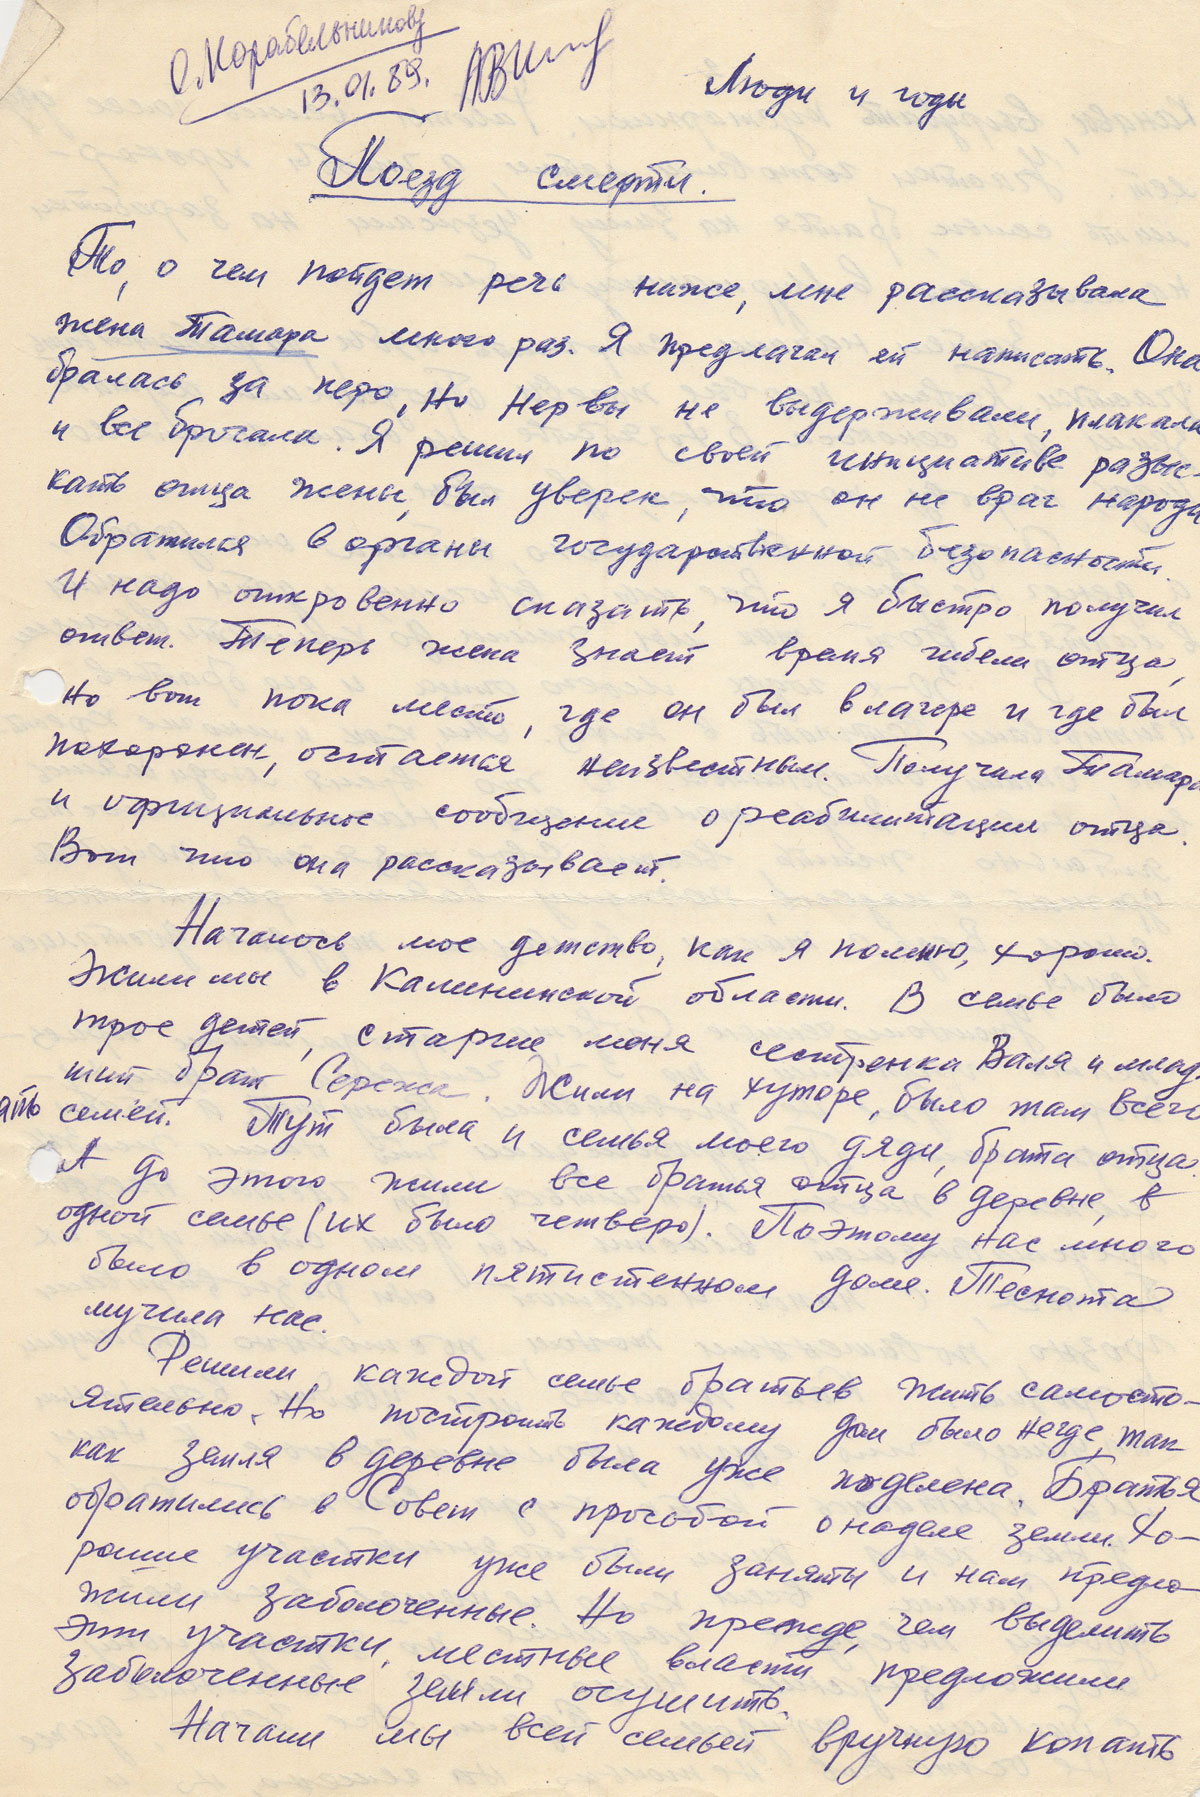 О. Морабельникову
13.01.89.
Люди и годы
Поезд смерти.
То, о чем пойдет речь ниже, мне рассказывала
жена Тамара много раз. Я предлагал ей написать. Она
бралась за перо, но нервы не выдерживали, плакала
и все бросала. Я решил по своей инициативе разыс-
кать отца жены, был уверен, что он не враг народа
Обратился в органы государственной безопасности.
И надо откровенно сказать, что я быстро получил
ответ. Теперь жена знает время гибели отца,
но вот пока место, где он был в лагере и где был
похоронен, остается неизвестным. Получила Тамара
и официальное сообщение о реабилитации отца.
Вот что она рассказывает.
Началось мое детство, как я помню, хорошо.
Жили мы в Калининской области. В семье было
трое детей, старше меня сестренка Валя и млад-
ший брат Сережа. Жили на хуторе, было там всего
ять семей. Тут была и семья моего дяди, брата отца.
А до этого жили все братья отца в деревне, в
одной семье (их было четверо). Поэтому нас много
было в одном пятистенном доме. Теснота
мучила нас.
Решили каждой семье братьев жить самосто-
ятельно. Но построить каждому дом было негде, так
как земля в деревне была уже поделена. Братья
обратились в Совет с просьбой о наделе земли. Хо-
рошие участки уже были заняты и нам предло-
жили заболоченные. Но прежде, чем выделить
эти участки, местные власти предложили
заболоченные земли осушить.
Начали мы всей семьей вручную копать